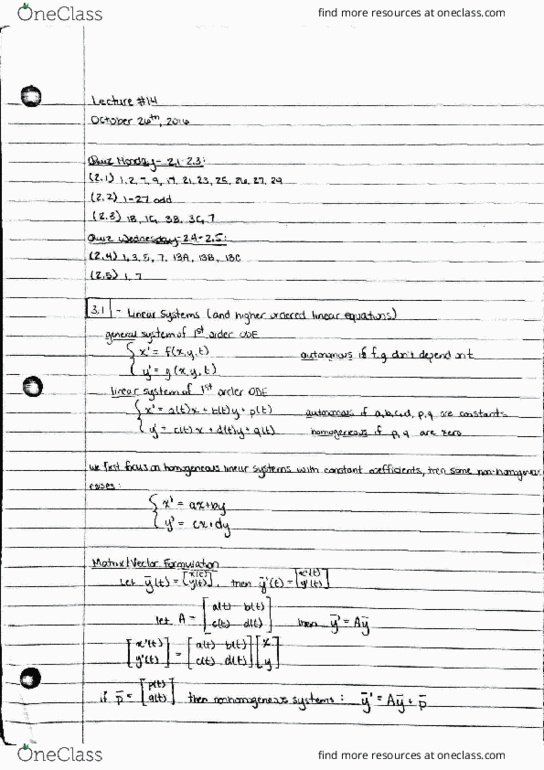 OneClass
find more resources at oneclass.com
Lecture #14
October 26th, 2016
Quiz Monday - 2.1-2.3:
(2.1) 1, 2, 7, 9, 17, 21, 23, 25, 26, 27, 29
(2.2) 1-27 odd
(2.3) 1B, 1C, 3B, 3C, 7
Quiz Wednesday - 2.4-2.5:
(2.4) 1, 3, 5, 7, 13A, 13B, 13C
(2.5) 1, 7
3.1 - Linear Systems (and higher ordered linear equations)
general system of 1st order ODE
{ x' = f(x,y,t) autonomous if f,g don't depend on t
y' = g(x,y,t)
linear system of 1st order ODE
{ x' = a(t)x + b(t)y + p(t) autonomous if a,b,c,d, p,q are constants
y' = c(t)x + d(t)y + q(t) homogeneous if p,q are zero
we first focus on homogeneous linear systems with constant coefficients, then some non-homogeneous
cases:
{ x' = ax+by
y' = cx+dy
Matrix/Vector Formulation
Let ȳ(t) = [x(t) y(t)], then ȳ'(t) = [x'(t) y'(t)]
let A = [a(t) b(t) c(t) d(t)] then ȳ' = Aȳ
[x'(t) y'(t)] = [a(t) b(t) c(t) d(t)] [x y]
if p̄ = [p(t) q(t)] then nonhomogeneous systems: ȳ' = Aȳ + p̄
OneClass
find more resources at oneclass.com